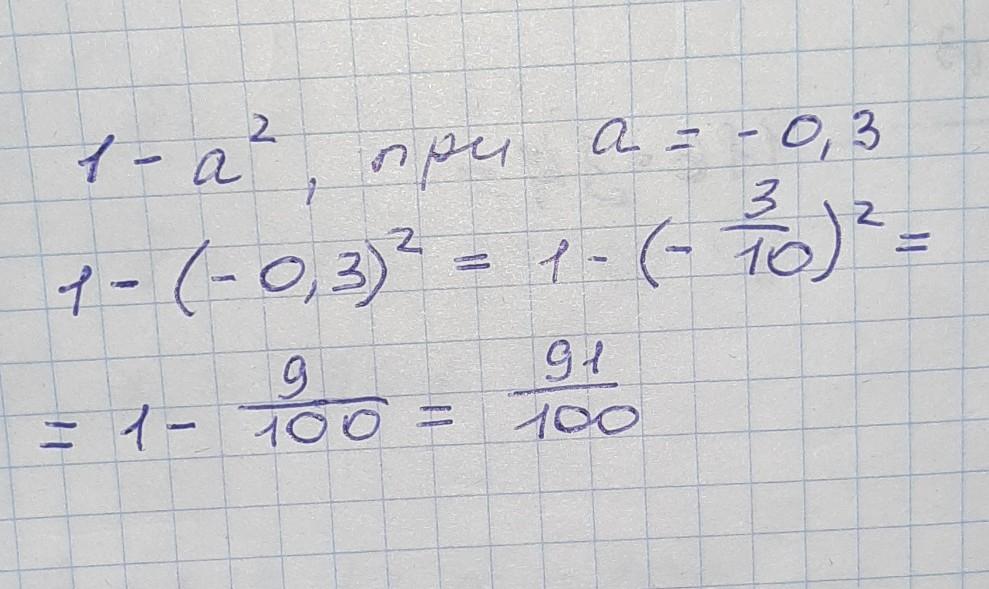 1 - a², при a = - 0,3
1 - (- 0,3)² = 1 - (- 3/10)² =
= 1 - 9/100 = 91/100